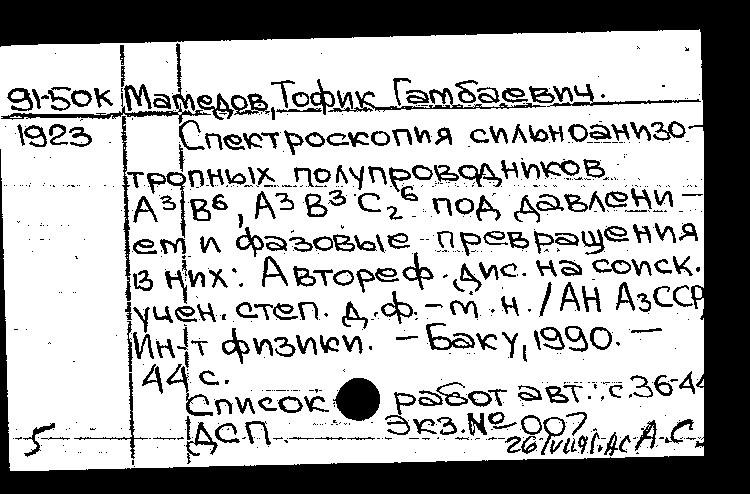 91-50К Мамедов, Тофик Гамбаевич.
1923 Спектроскопия сильноанизо-
тропных полупроводников
А³В⁶, А³В³С₂⁶ под давлени-
ем и фазовые превращения
в них: Автореф. дис. на соиск.
учен. степ. д.ф.-м.н. / АН АзССР,
Ин-т физики. – Баку, 1990. –
44 с.
Список работ авт.: с.36-44
ДСП. Экз.№ 007
5 А.С.